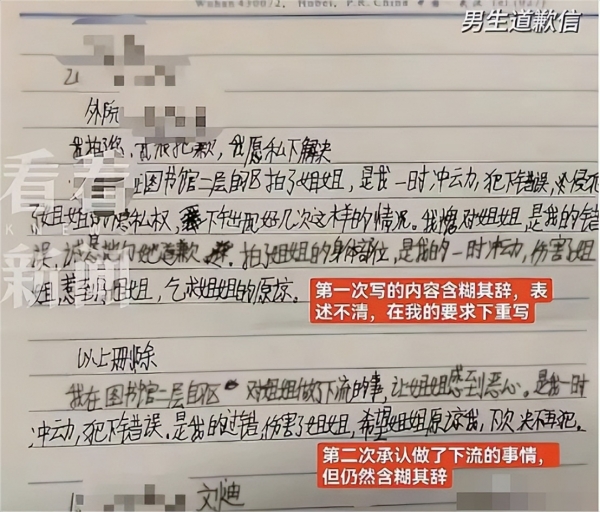 Wuhan 430072, Hubei, P.R.China
男生道歉信
21
外院
我愿私下解决
图书馆二层自习区拍了姐姐,是我一时冲动,犯下错误,侵犯
了姐姐的隐私权,下出现好几次这样的情况。我愧对姐姐,是我的错
误,诚恳地向她道歉。拍了姐姐的身体部位,是我的一时冲动,伤害了姐
姐,惹到了姐姐,乞求姐姐的原谅。
第一次写的内容含糊其辞,表
述不清,在我的要求下重写
以上删除
我在图书馆二层自习区对姐姐做了下流的事,让姐姐感到恶心。是我一时
冲动,犯下错误,是我的过错,伤害了姐姐,希望姐姐原谅我,下次决不再犯。
第二次承认做了下流的事情,
但仍然含糊其辞
看看
KNEWS
新闻